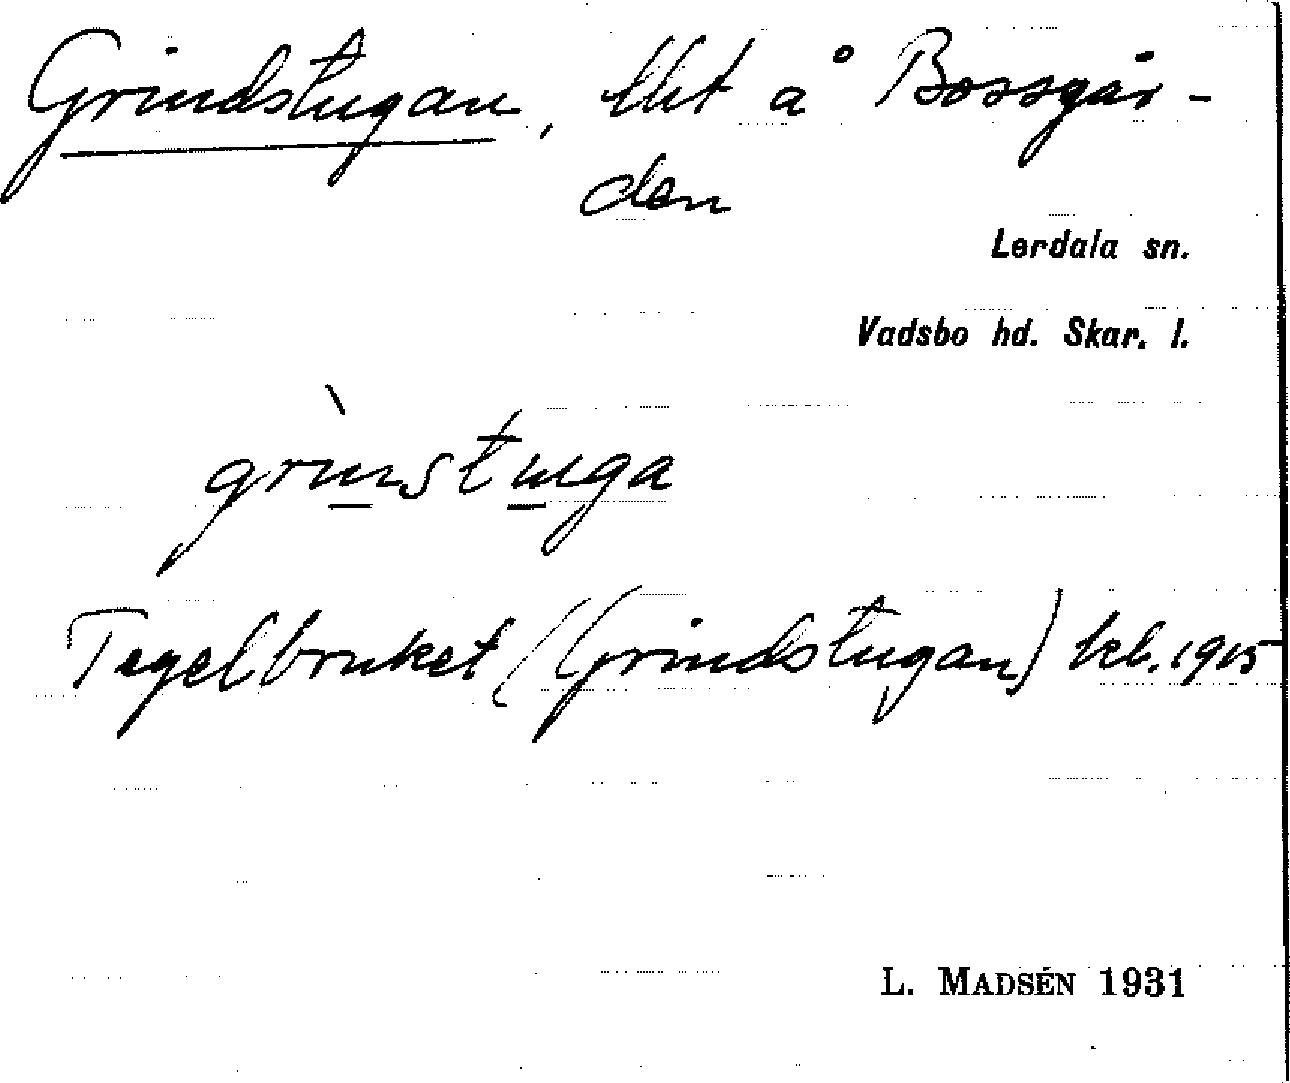 Grindstugan, lht å Bossgår-
den
Lerdala sn.
Vadsbo hd. Skar. l.
grìnstuga
Tegelbruket (Grindstugan) kb. 1915
L. MADSÉN 1931